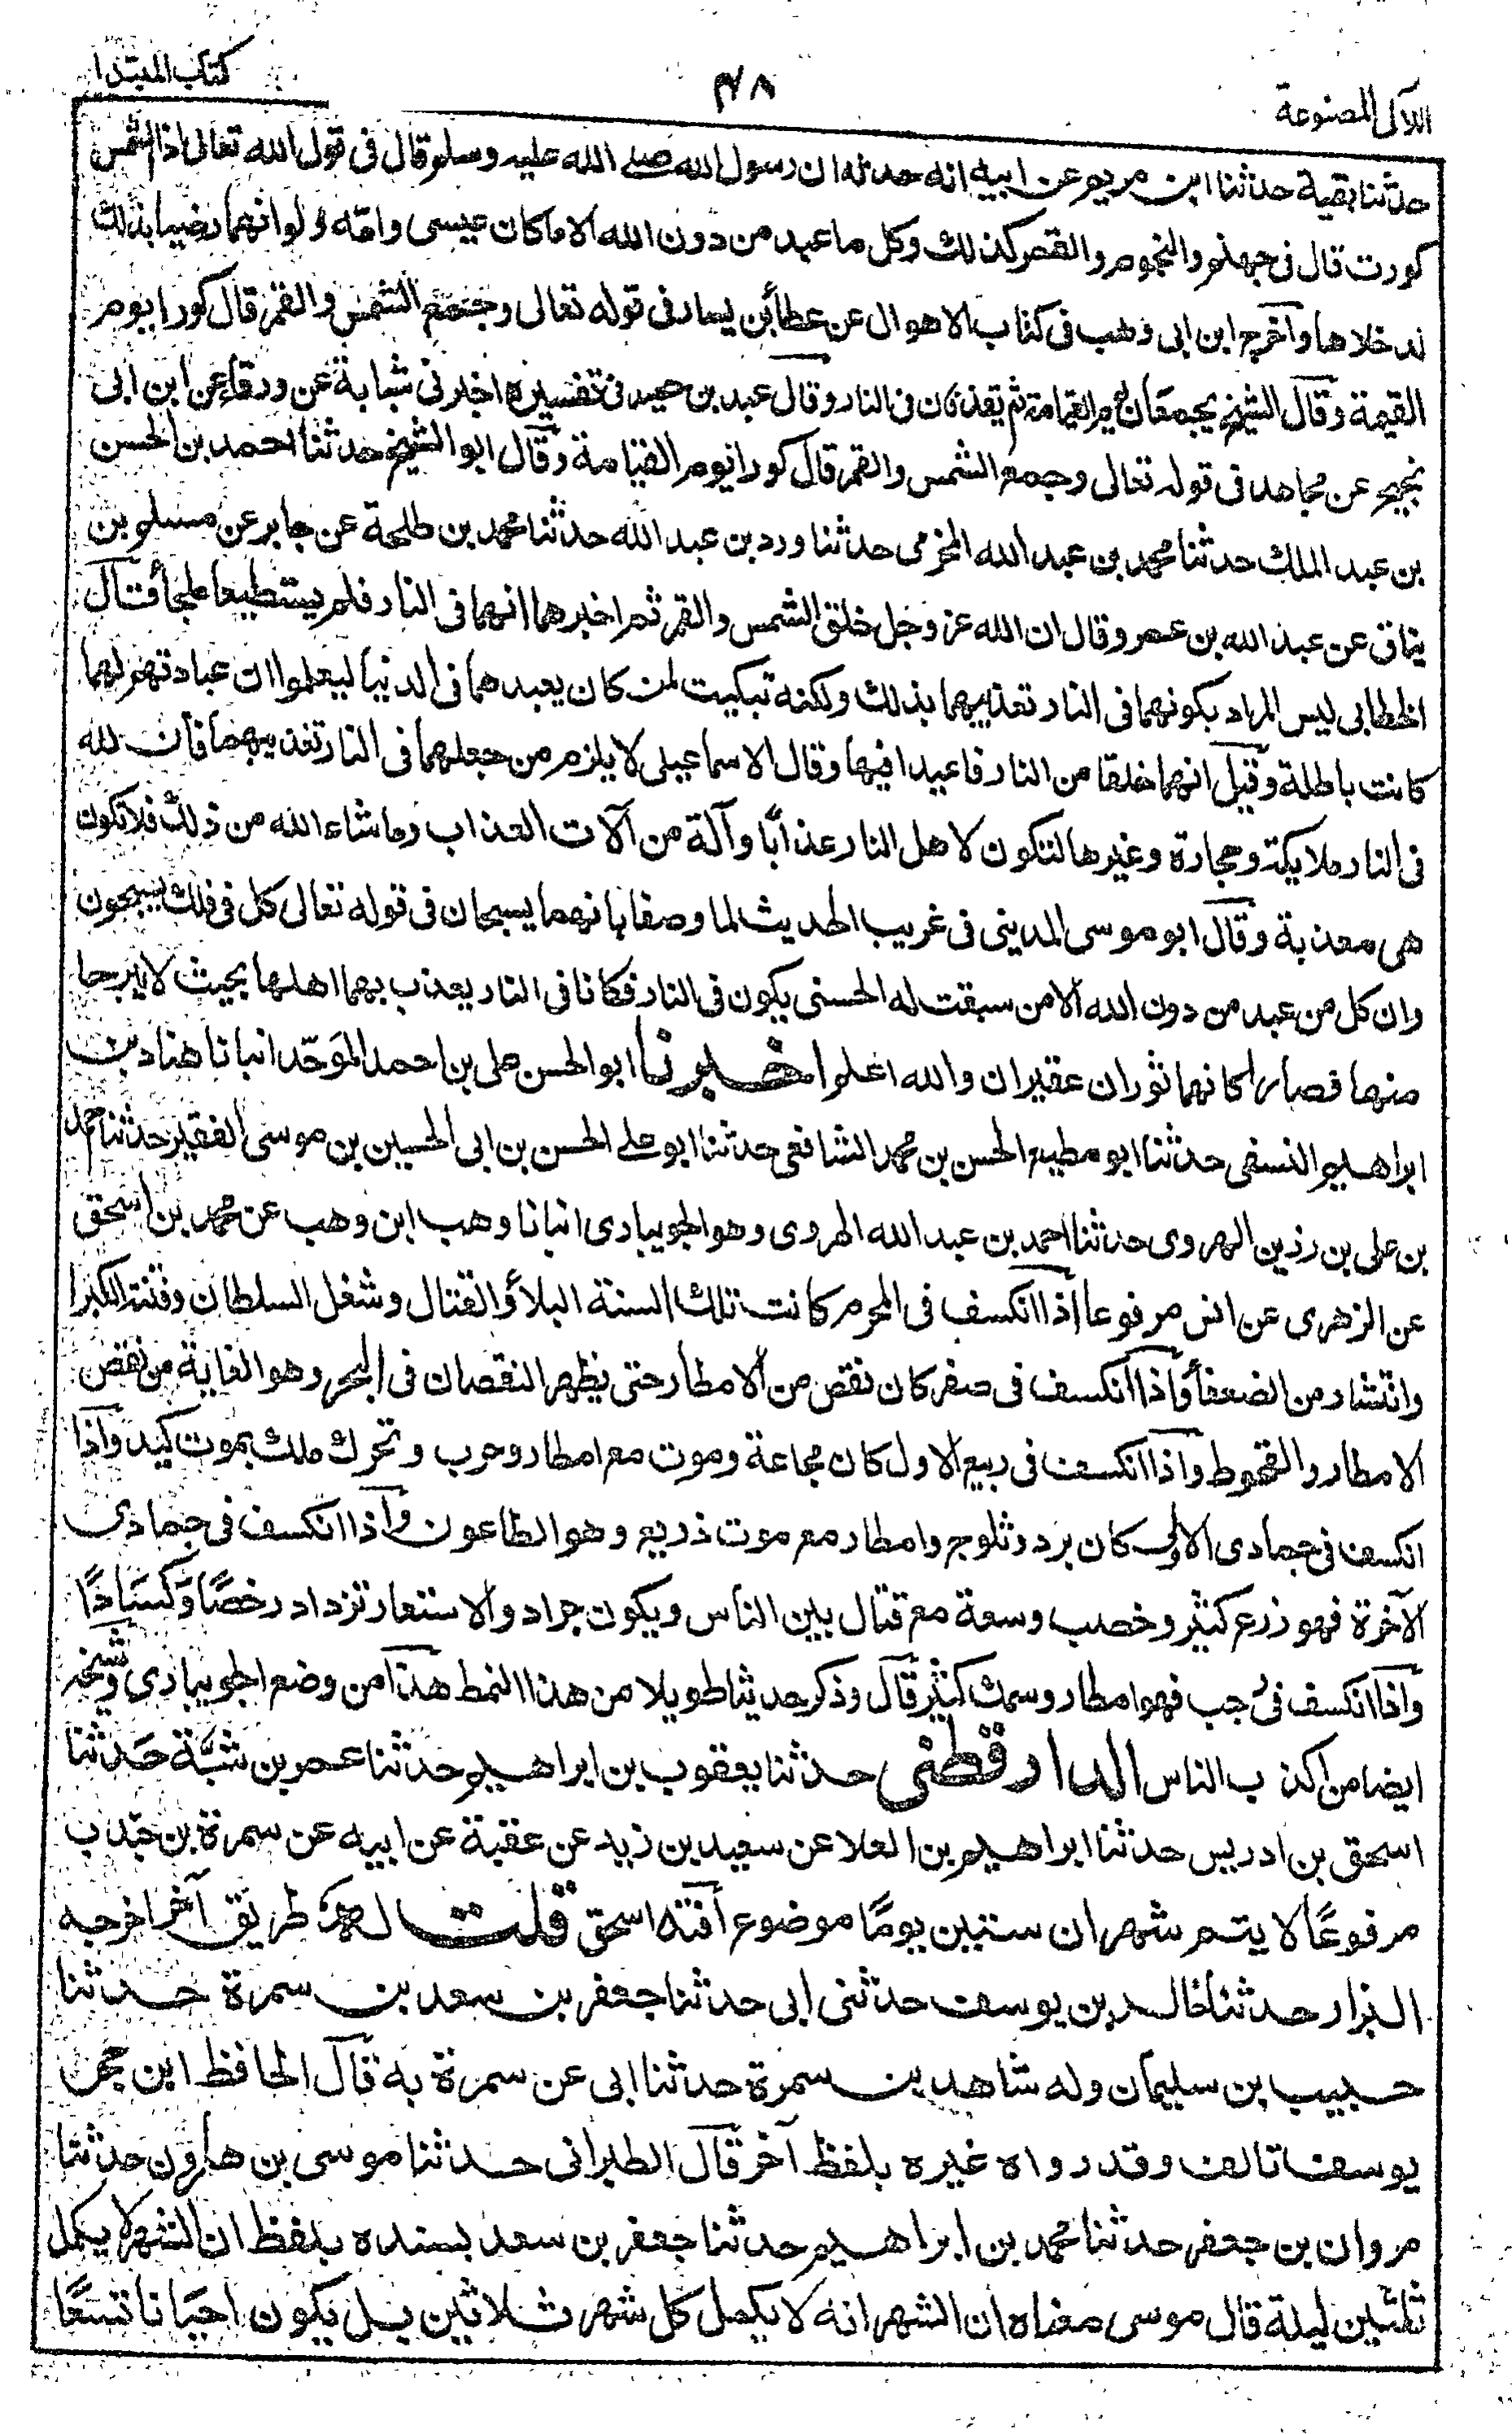 اللآلى المصنوعة
٤٨
كتاب المبتدا
حدثنا بقية حدثنا ابن مريم عن ابيه انه حدثه ان رسول الله صلے الله عليه وسلم قال فى قول الله تعالى اذا الشمس
كورت قال فى جهنم والنجوم والقمر كذلك وكل ما عبد من دون الله الا ما كان عيسى وامّه ولو انهما رضيا بذلك
لدخلاها وآخرج ابن ابى وهب فى كتاب الاهوال عن عطاء بن يسار فى قوله تعالى وجمع الشمس والقمر قال كورا يوم
القيمة وقال الشيخ يجمعان يوم القيامة ثم يقذفان فى النار وقال عبد بن حميد فى تفسيره اخبرنى شبابة عن ورقاء عن ابن ابى
نجيح عن مجاهد فى قوله تعالى وجمع الشمس والقمر قال كورا يوم القيامة وقال ابو الشيخ حدثنا احمد بن الحسن
بن عبد الملك حدثنا محمد بن عبد الله المخرمى حدثنا ورد بن عبد الله حدثنا محمد بن طلحة عن جابر عن مسلم بن
يناق عن عبد الله بن عمرو قال ان الله عز وجل خلق الشمس والقمر ثم اخبرهما انهما فى النار فلم يستطيعا ملجأ قال
الخطابى ليس المراد بكونهما فى النار تعذيبهما بذلك ولكنه تبكيت لمن كان يعبدهما فى الدنيا ليعلموا ان عبادتهم لهما
كانت باطلة وقيل انهما خلقا من النار فاعيدا فيها وقال الاسماعيلى لا يلزم من جعلهما فى النار تعذيبهما فان لله
فى النار ملايكة وحجارة وغيرها لتكون لاهل النار عذابًا وآلة من آلات العذاب وما شاء الله من ذلك فلا تكون
هى معذبة وقال ابو موسى المدينى فى غريب الحديث لما وصفا بانهما يسبحان فى قوله تعالى كل فى فلك يسبحون
وان كل من عبد من دون الله الا من سبقت له الحسنى يكون فى النار فكانا فى النار يعذب بهما اهلها بحيث لا يبرحا
منها فصارا كانهما ثوران عقيران والله اعلم اخبرنا ابو الحسن على بن احمد الموَحّد انبانا هناد بن
ابراهيم النسفى حدثنا ابو مطيع الحسن بن محمد الشافعى حدثنا ابو علے الحسن بن ابى الحسين بن موسى الفقير حدثنا محمد
بن على بن رزين الهروى حدثنا احمد بن عبد الله الهروى وهو الجويبادى انبانا وهب ابن وهب عن محمد بن اسحق
عن الزهرى عن انس مرفوعا اذا انكسف فى المحرم كانت تلك السنة البلاؤ القتال وشغل السلطان وفتنة الكبرا
وانتشار من الضعفاء وآذا انكسف فى صفر كان نقص من الامطار حتى يظهر النقصان فى البحر وهو الغاية من نقص
الامطار والقحوط وآذا انكسف فى ربيع الاول كان مجاعة وموت مع امطار وحرب وتحرك ملك بموت كبد وآذا
انكسف فى جمادى الاولى كان برد وثلوج وامطار مع موت ذريع وهو الطاعون وآذا انكسف فى جمادى
الآخرة فهو زرع كثير وخصب وسعة مع قتال بين الناس ويكون جراد والاستعار تزداد رخصًا وَكَسَادًا
وآذا انكسف فى رجب فهو امطار وسمك كثير قال وذكر حديثا طويلا من هذا النمط هذا من وضع الجويبادى وشيخه
ايضا من اكذب الناس الدارقطنى حدثنا يعقوب بن ابراهيم حدثنا عمر بن شبَّة حَدثنا
اسحق بن ادريس حدثنا ابراهيم بن العلا عن سعيد بن زيد عن عقبة عن ابيه عن سمرة بن جندب
مرفوعًا لا يتم شهران ستين يومًا موضوع آفته اسحق قلت له طريق آخر اخرجه
البزار حدثنا خالد بن يوسف حدثنى ابى حدثنا جعفر بن سعد بن سمرة حدثنا
حبيب بن سليمان وله شاهد بن سمرة حدثنا ابى عن سمرة به قال الحافظ ابن حجر
يوسف تالف وقد رواه غيره بلفظ آخر قال الطبرانى حدثنا موسى بن هارون حدثنا
مروان بن جعفر حدثنا محمد بن ابراهيم حدثنا جعفر بن سعد بسنده بلفظ ان الشهر لا يكمل
ثلثين ليلة قال موسى معناه ان الشهر انه لا يكمل كل شهر ثلاثين بل يكون احيَانا تسعًا